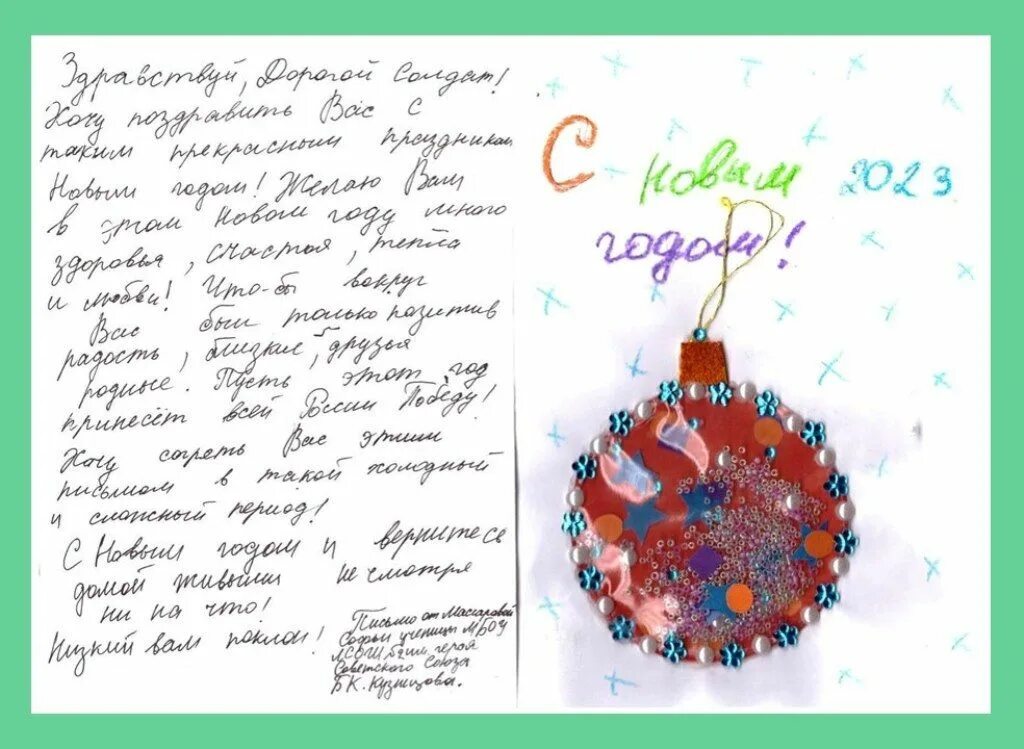 Здравствуй, Дорогой Солдат!
Хочу поздравить Вас с
таким прекрасным праздником
Новым годом! Желаю Вам
в этом Новом году много
здоровья, счастья, тепла
и любви! Что-бы вокруг
Вас был только позитив
радость, близкие, друзья
родные. Пусть этот год
принесёт всей России Победу!
Хочу согреть Вас этим
письмом в такой холодный
и сложный период!
С Новым годом и вернитесь
домой живыми не смотря
ни на что!
Низкий вам поклон!
Письмо от
Софьи ученицы МБОУ
ЛСОШ им. героя
Советского Союза
Б.К. Кузнецова.
С новым 2023
годом!